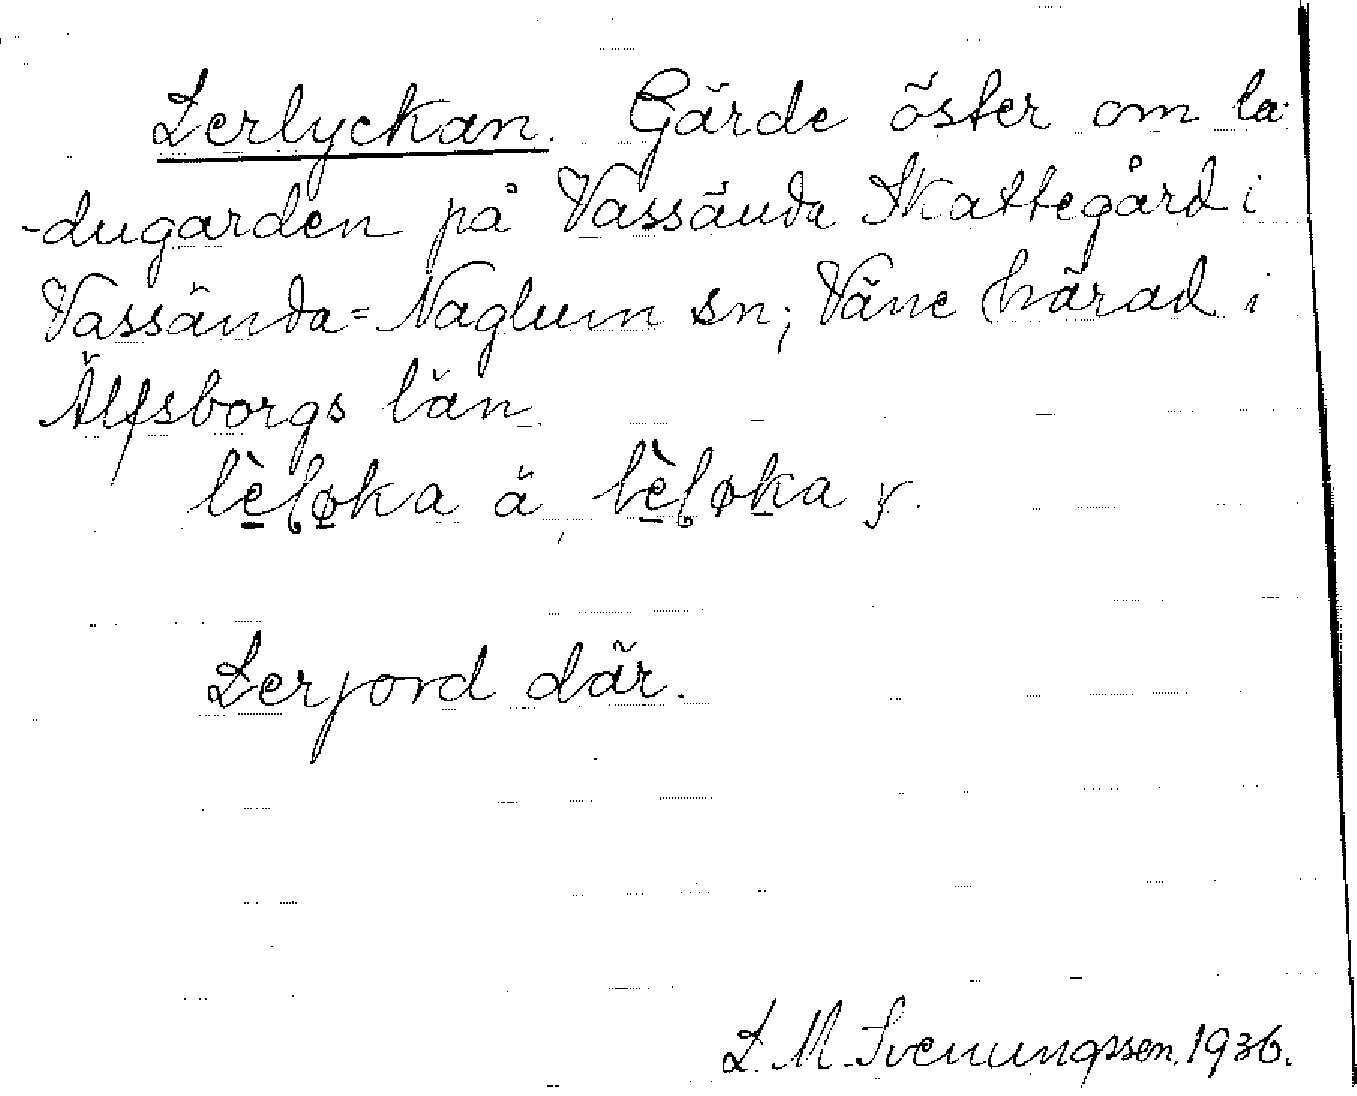 Lerlyckan. Gärde öster om la-
-dugarden på Vassända Skattegård i
Vassända=Naglum sn; Väne härad i
Älfsborgs län.
lèḷøka ä, lèḷøka y.
Lerjord där.
L. M. Svenungsson. 1936.